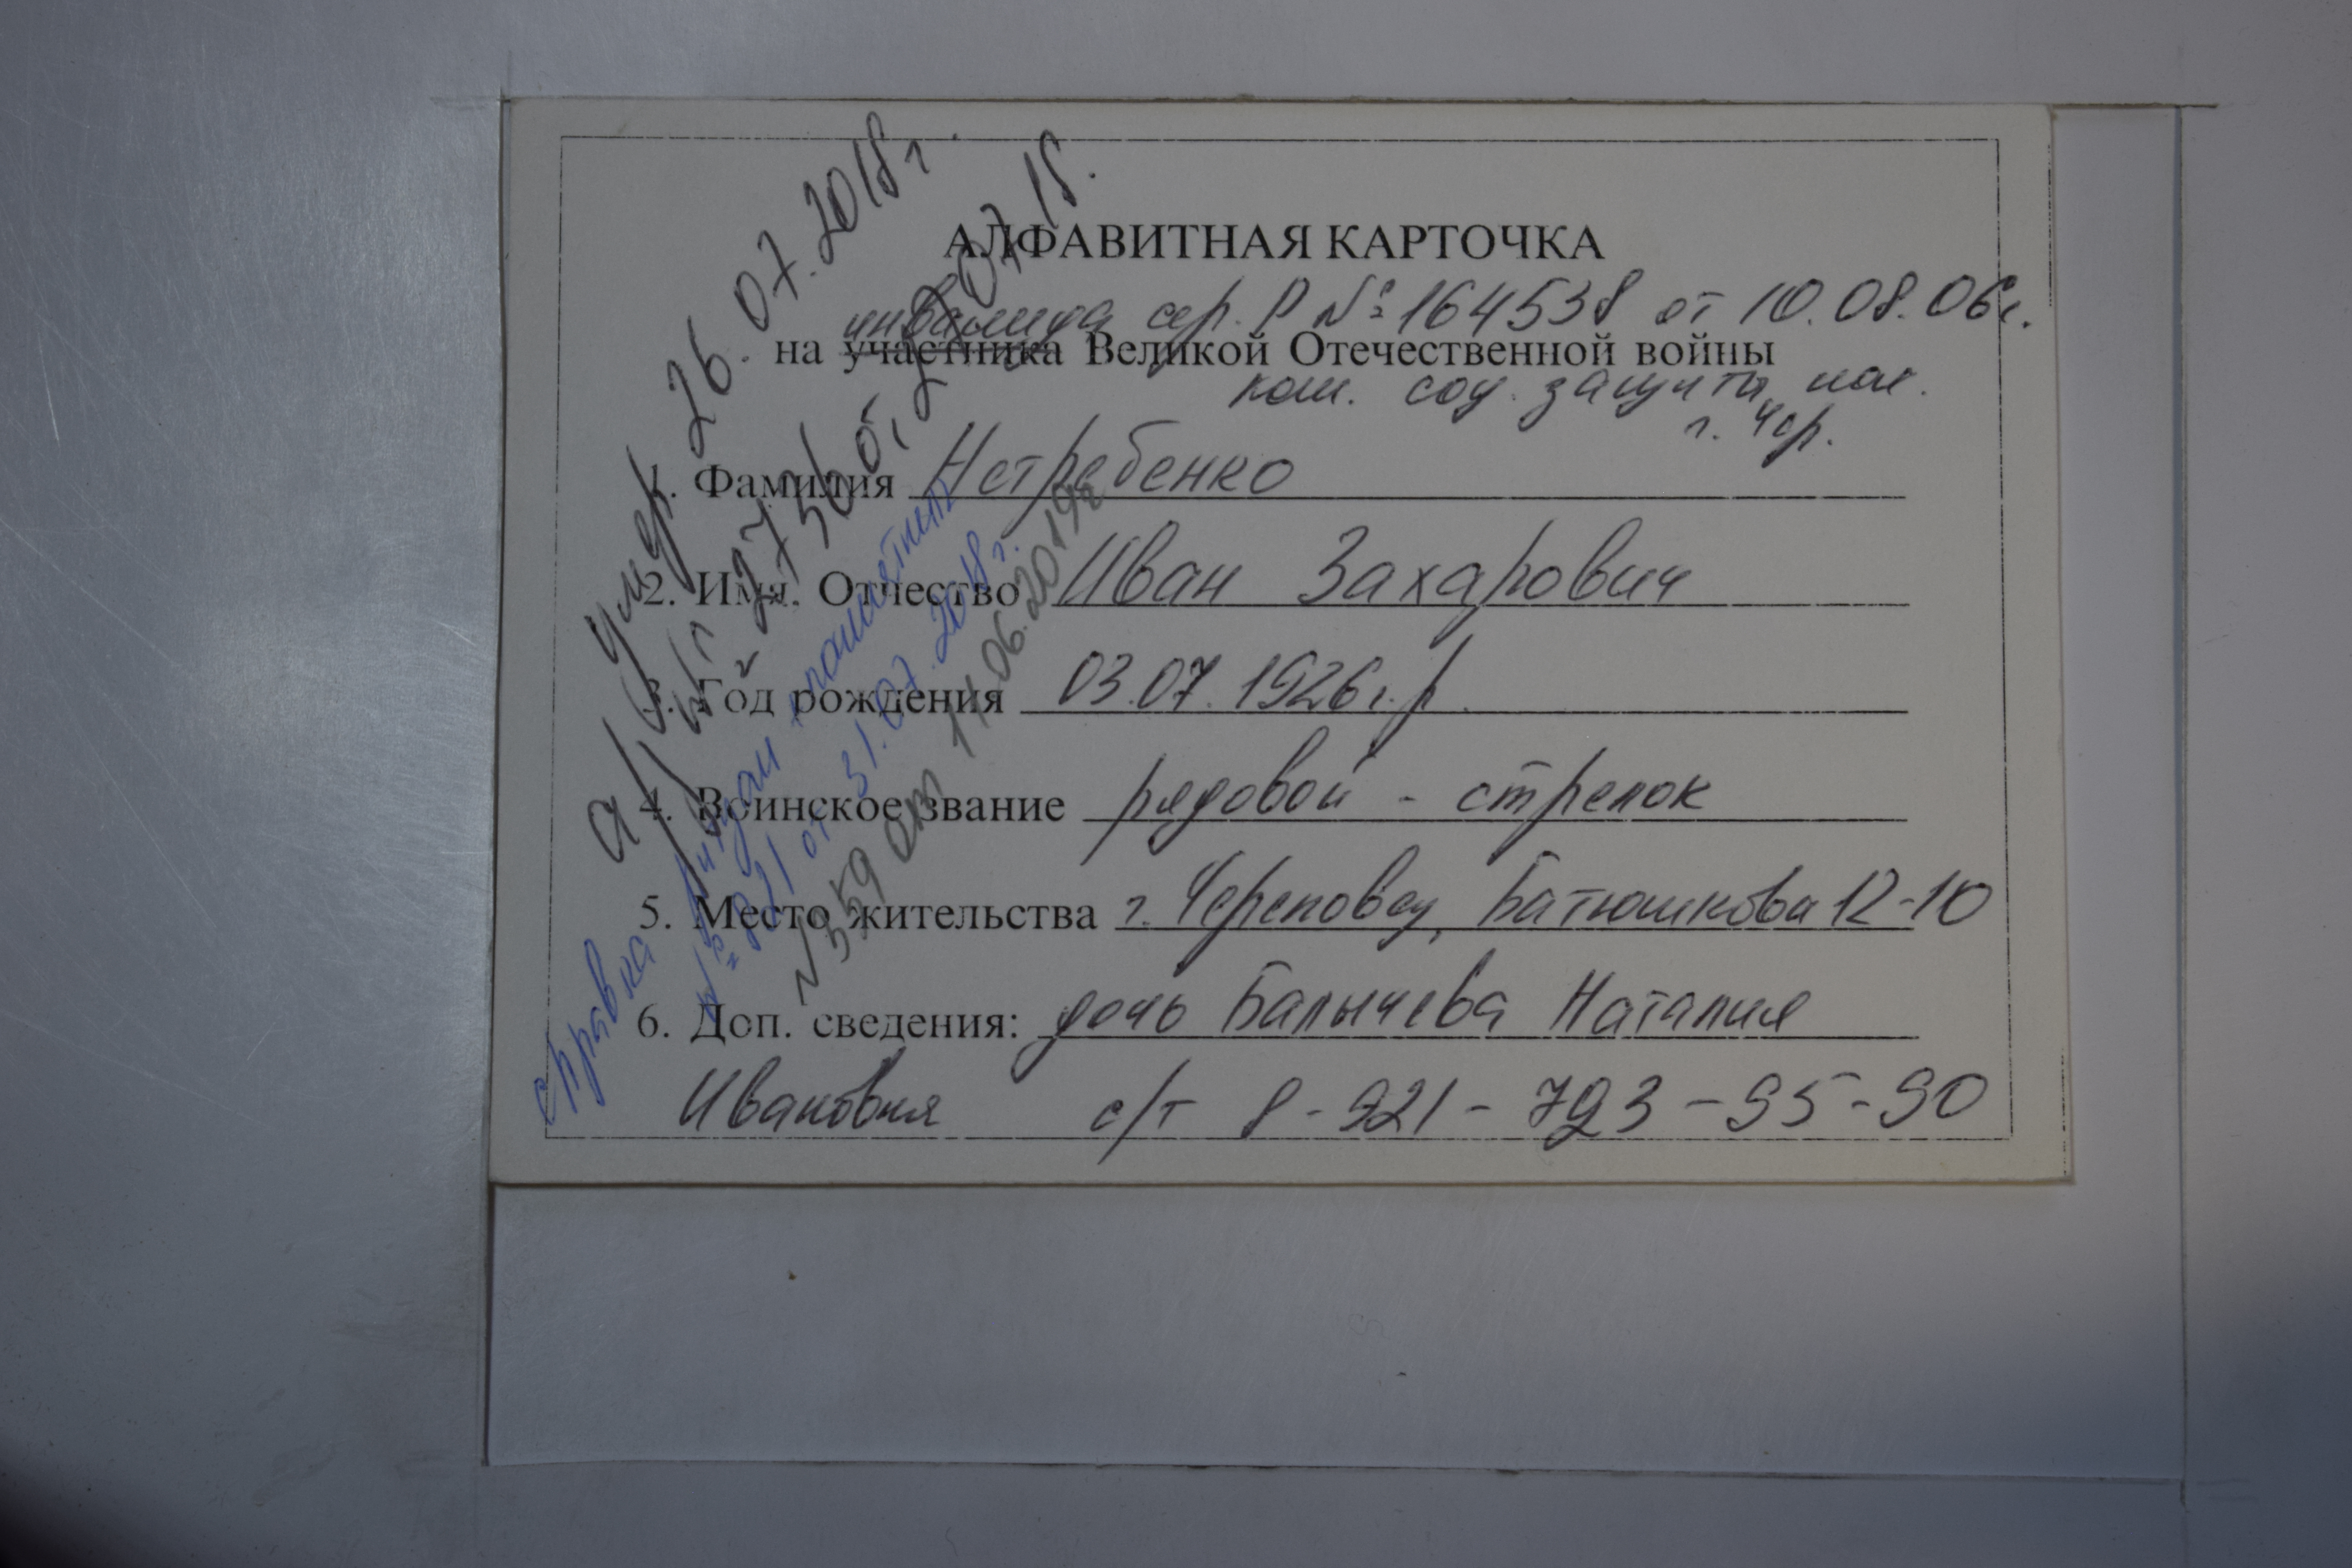 АЛФАВИТНАЯ КАРТОЧКА
инвалида сер. Р № 164538 от 10.08.06г.
на участника Великой Отечественной войны
ком. соц. защиты нас.
г. Чер.
1. Фамилия Нетребенко
2. Имя, Отчество Иван Захарович
3. Год рождения 03.07.1926г.р.
4. Воинское звание рядовой - стрелок
5. Место жительства г. Череповец, Батюшкова 12-10
6. Доп. сведения: дочь Балычева Наталия
Ивановня с/т 8-921-723-95-90
умер 26.07.2018г.
а/з № 2756 от 27.07.18.
справка выдан памятник
№ 821 от 31.07.2018г.
№359 от 11.06.2019г